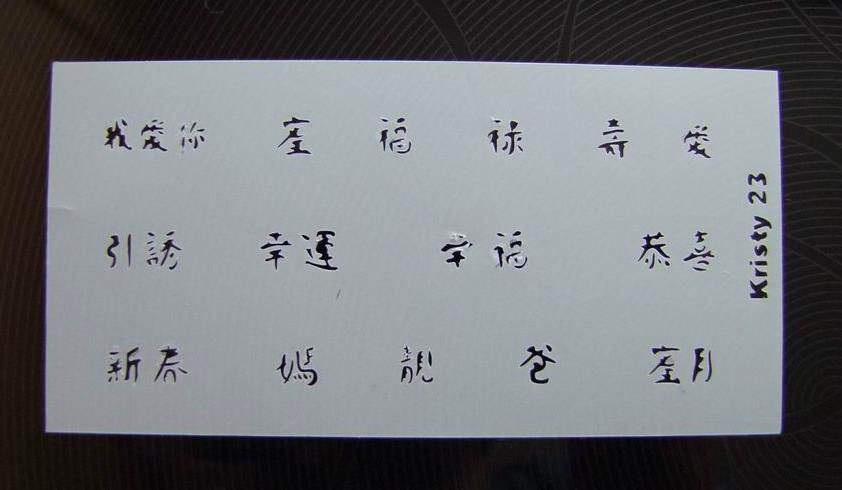 我愛你 福 祿 壽 愛
引誘 幸運 幸福 恭喜
新春 媽 靚 爸 月
Kristy 23